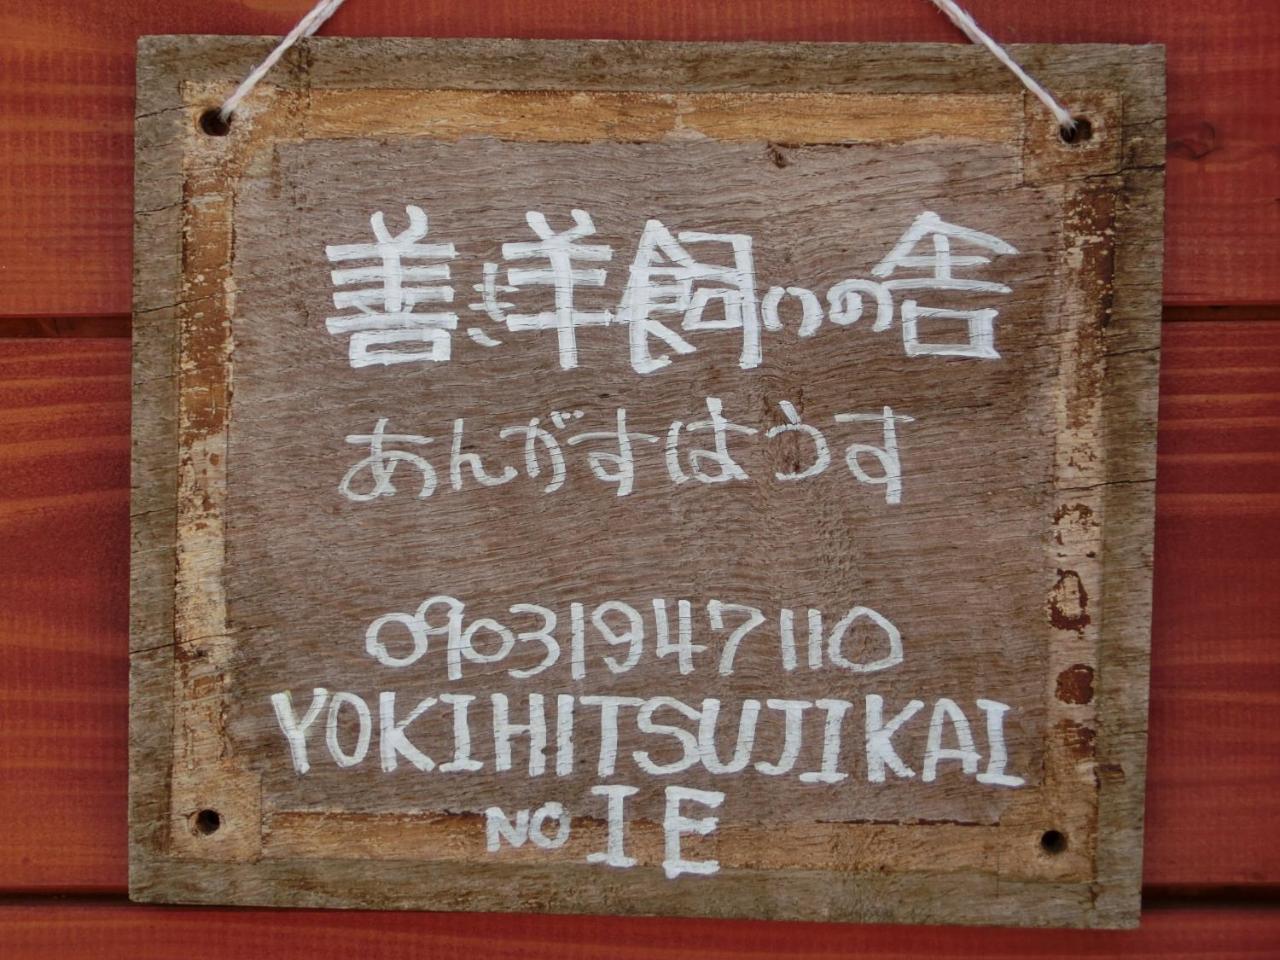 善き羊飼いの舎
あんがすはうす
09031947110
YOKIHITSUJIKAI
NO IE